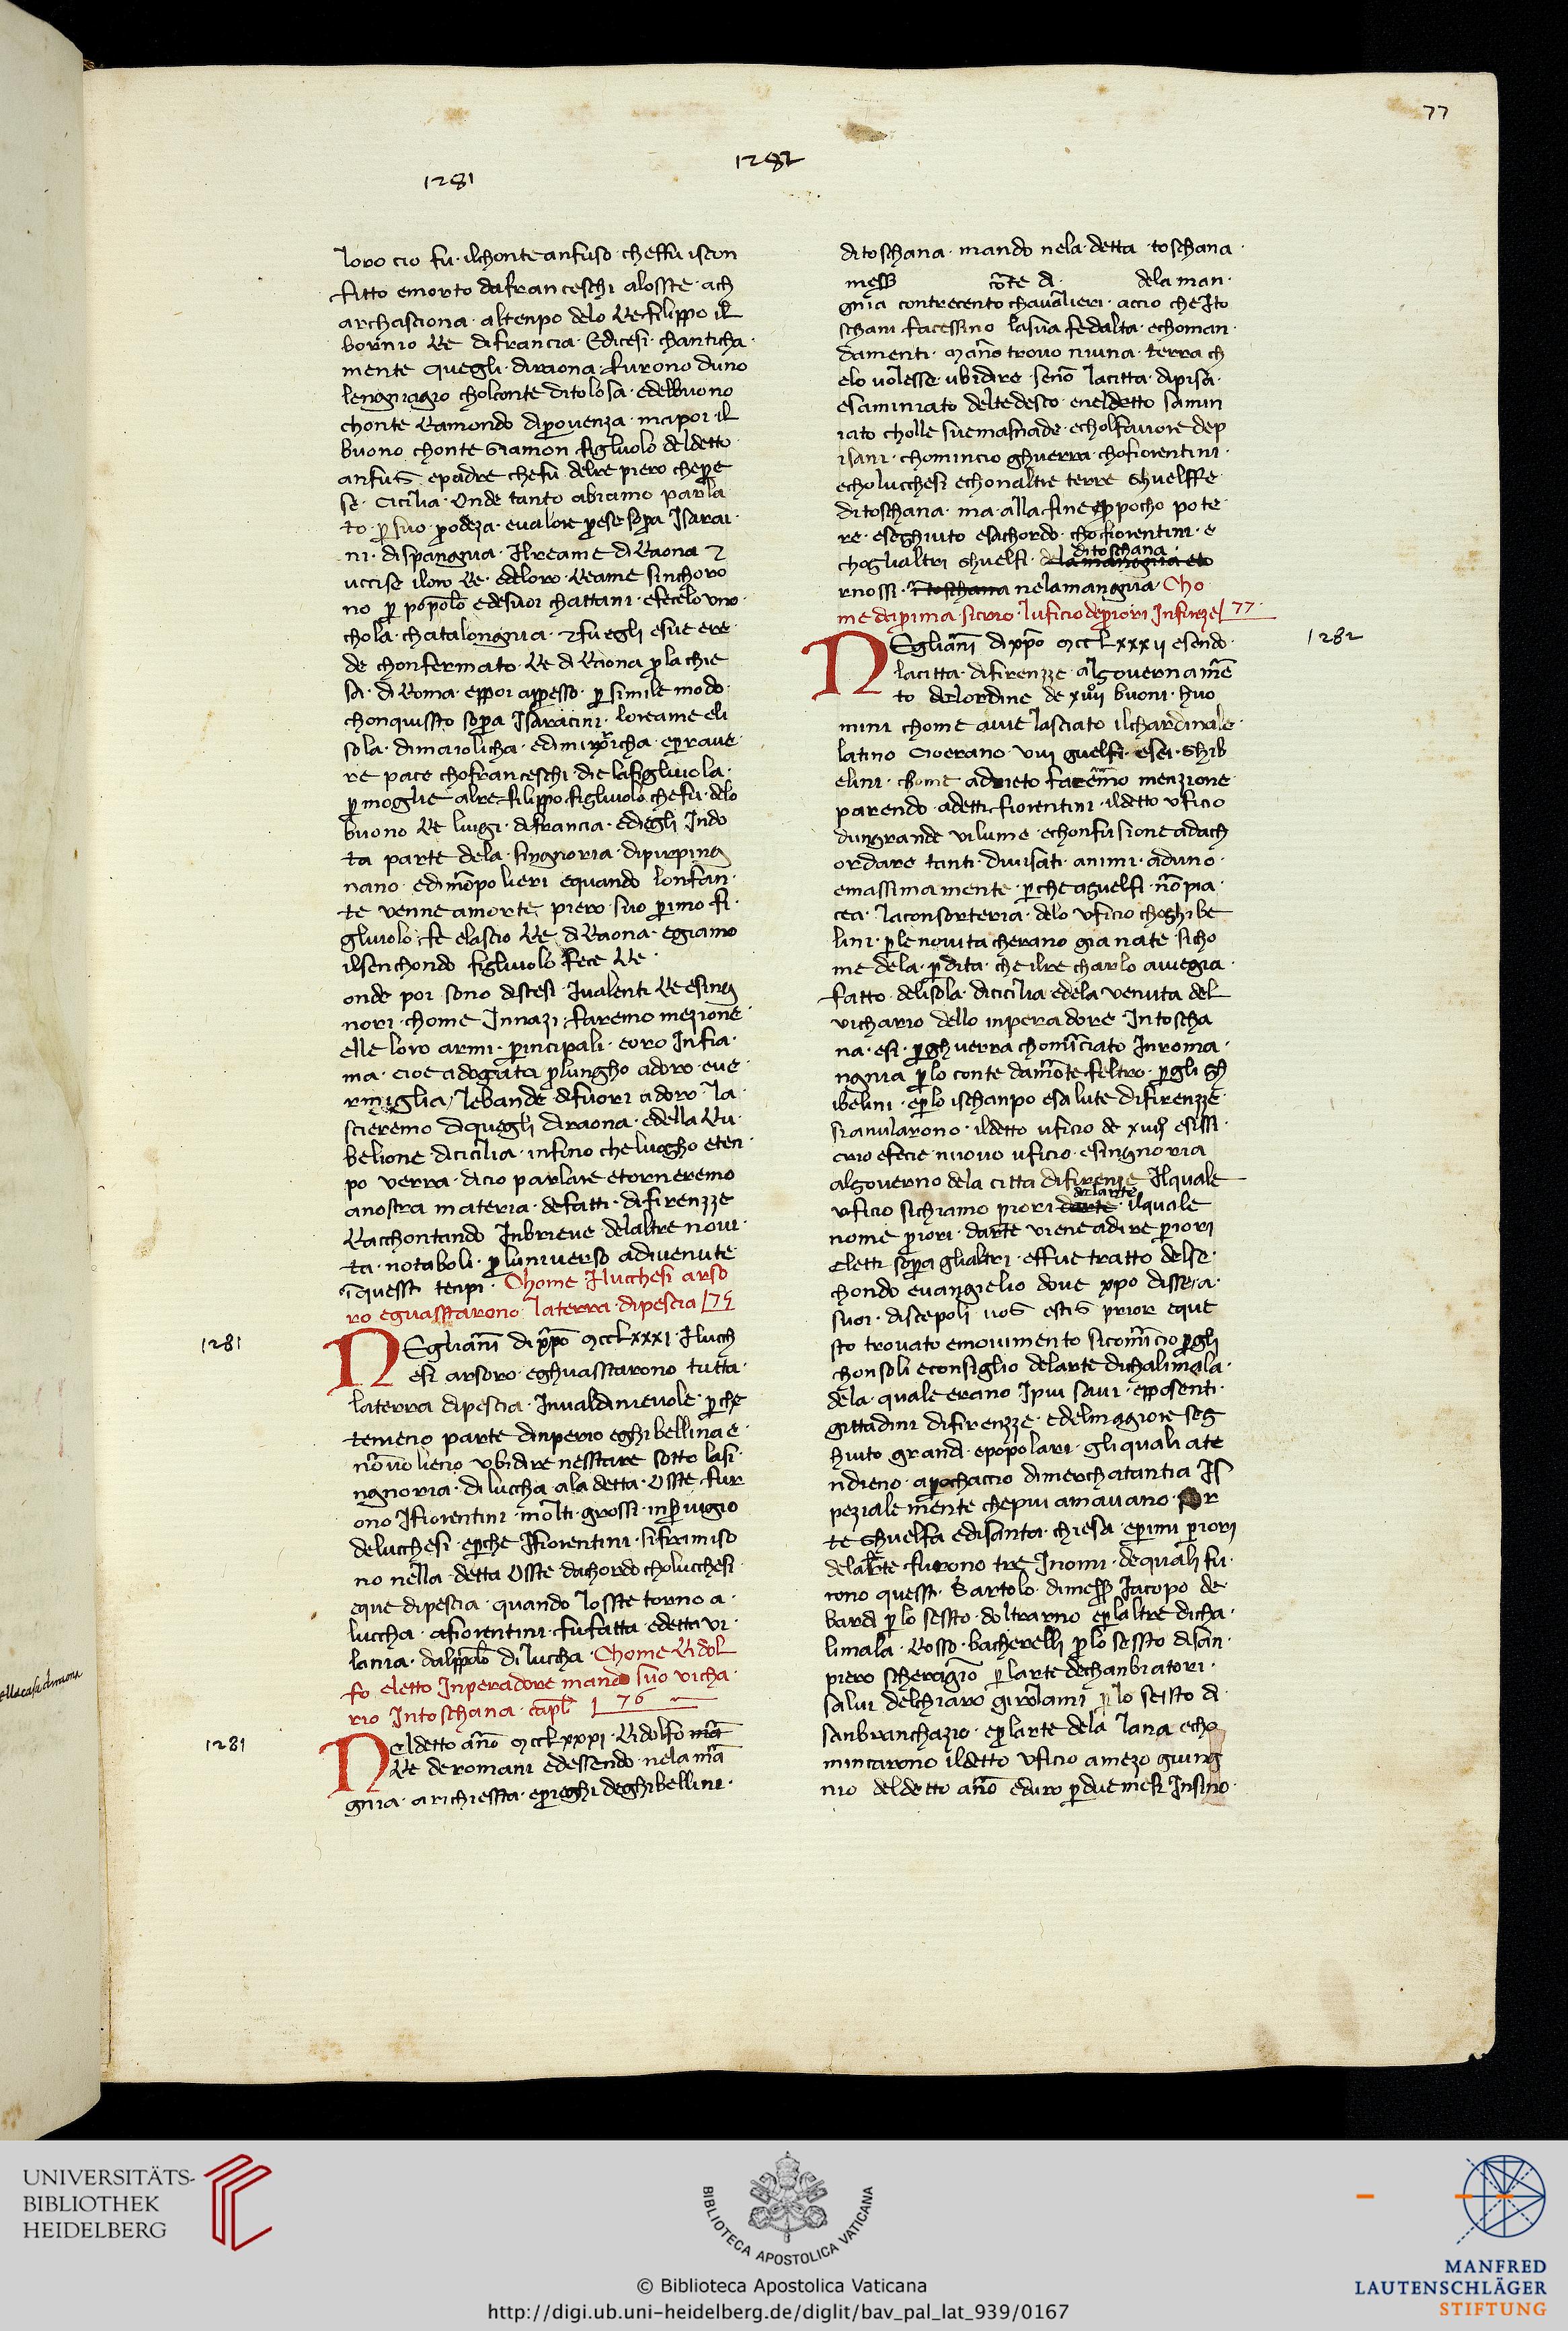 77
1281
1282
loro cio fu · ilchonte anfuso · cheffu iscon
fitto emorto dafranceschi alosste · ach
archasciona · altenpo delo Re filippo il
bornio Re difrancia · Edicesi · chanticha
mente quegli · diraona · furono duno
lengniagio cholconte ditolosa · edelbuono
chonte Ramondo diprovenza · mapoi · il
buono chonte Giamon figluolo deldetto
anfus · epadre chefu delre piero chepre
se · Cicilia · Onde tanto abiamo parla
to · per suo · prodeza · evalore prese sopra Isarai
ni · dispangnia · Ilreame diRaona ⁊
uccise iloro Re · edeloro · Reame sinchoro
no per popolo edesuoi chattani · efecelo uno
chola · chatalongnia · ⁊fu egli esue ere
de chonfermato · Re diRaona perla chie
sa · diRoma · eppoi apresso · per simile modo
chonquissto sopra Isaracini · loreame eli
sola · dimaiolicha · ediminoricha · eperave
re pace chofranceschi · die lafigluiola ·
per moglie alre filippo figluiolo chefu · delo
buono Re luigi · difrancia · edegli Indo
ta parte dela · singnoria · dipirping
nano · edimonpolieri equando lonfan
te venne amorte piero · suo primo fi
gluiolo · fe elascio Re diRaona · egiamo
ilsenchondo figluiolo fece Re ·
onde poi sono discesi · Ivalenti Re esing
nori · chome Innazi · faremo mezione
elle loro armi · principali · eoro Infia
ma · cioe adogata perlungho adoro · eve
rmiglia / lebande difuori adoro · la
scieremo diquegli diraona · edella Ru
belione dicicilia · infino cheluogho eten
po verra · dicio parlare etorneremo
anostra materia · defatti · difirenzze
Racchontando Inbrieve delaltre novi
ta · notaboli · per luniverso adivenute
inquessti tenpi · Chome Ilucchesi arso
ro eguasstarono laterra · dipescia / 75
1281
NEgliani dixpo MCCLxxxi · Ilucch
esi arsoro · eghuasstarono tutta
laterra dipescia · Invaldinievole · perche
tenieno parte dinperio eghibellina e
nonvolieno ubidire nesstare sotto lasi
ngnoria · diluccha · ala detta · Osste · fur
ono Ifiorentini · molti · grossi · inservigio
delucchesi · eperche Ifiorentini · siframiso
no nella · detta Osste dachordo cholucchesi
eque dipescia · quando losste torno a ·
luccha · afiorentini · fufatta · edetta vi
lania · dalpopolo di luccha · Chome Ridol
fo eletto Inperadore mando suo vicha
rio Intoschana · capl 76
1281
Neldetto ano MCCLxxxi · Ridolfo ma
Re deromani edessendo · nelama
gnia · arichiessta · eprieghi deghibellini ·
ditoschana · mando nela · detta · toschana ·
mess conte d · dela man ·
gnia contrecento chavalieri · accio che Ito
schani facessino lasua fedalta · echoman
damenti · Mano trovo niuna · terra ch
elo volesse ubidire seno lacitta · dipisa ·
esaminiato deltedesco · eneldetto samin
iato cholle suemasnade · echolfavore dep
isani · chomincio ghuerra · chofiorentini ·
echolucchesi echonaltre terre Ghuelffe
ditoschana · ma alla fine eppocho pote
re · eseghuito esachordo · chofiorentini · e
ditoschana
choglialtri ghuelfi · delamangnia eto
rnossi · Intoschana nelamangnia · Cho
me daprima · sicrio · luficio depriori Infirenze / 77
1282
NEgliani dixpo MCCLxxxii esendo
lacitta · difirenzze · algovernamen
to delordine de xiiii buoni · huo
mini chome avie lasciato ilchardinale
latino Cioerano · viii guelfi · esei · Ghib
elini · chome adrieto faremo menzione
parendo · adetti fiorentini · ildetto uficio
dungrande vilume · echonfusione adach
ordare tanti · divisati · animi · aduno
emassimamente · perche aguelfi · nonpia
cea · laconsorteria · delo uficio choghibe
lini · perle novita cherano gia nate · sicho
me dela · perdita · che ilre charlo avegia
fatto · delisola · dicicilia · edela venuta del
vichario dello inperadore Intoscha
na · esi · perghuerra chominciato Inroma
ngnia per lo conte damonte feltro · pergli gh
ibelini · eperlo ischanpo esalute difirenzze
sianularono · ildetto uficio de xiiii esissi
crio efecie nuovo uficio · esingnoria
algoverno dela citta difirenze Ilquale
delarte
uficio sichiamo priori darte · ilquale
nome priori · darte viene adire priori
eletti sopra glialtri · effue tratto delse
chondo evangielio dove xpo disse · a
suoi · discepoli · vos estis prior eque
sto trovato emovimento sicomincio pergli
chonsoli econsiglio delarte dichalimala ·
dela · quale erano Ipiu savi · epposenti ·
cittadini difirenzze · edelmagiore seg
huito grandi · epopolari · gli quali ate
ndieno · aprochaccio dimerchatantia Is
peziale mente chepiu amavano · par
te Ghuelfa edisanta · chiesa · eprimi priori
delarte furono tre Inomi · dequali fu
rono quessti · Bartolo · dimess Iacopo de
bardi per lo sessto · doltrarno eperlaltre dicha
limala · Rosso · bacherelli per lo sessto disan
piero scheragio per larte dechanbiatori ·
salvi delchiaro girolami per lo sessto d
sanbranchazio · eperlarte dela lana echo
minciarono ildetto uficio amezo giung
nio deldetto ano eduro perduemesi Insino ·
UNIVERSITÄTS-
BIBLIOTHEK
HEIDELBERG
BIBLIOTECA APOSTOLICA VATICANA
© Biblioteca Apostolica Vaticana
http://digi.ub.uni-heidelberg.de/diglit/bav_pal_lat_939/0167
MANFRED
LAUTENSCHLÄGER
STIFTUNG